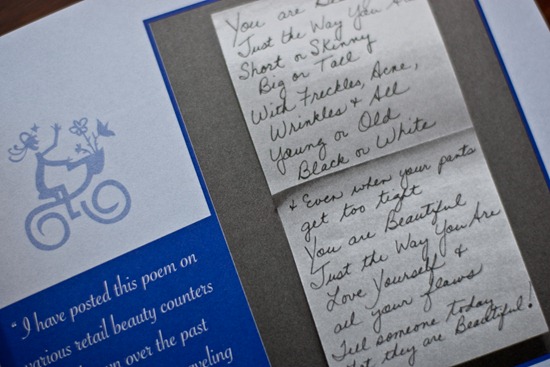 You are
Just the Way You
Short or Skinny
Big or Tall
With Freckles, Acne,
Wrinkles & All
Young or Old
Black or White
& Even when your pants
get too tight
You are Beautiful
Just the Way You Are
Love Yourself &
all your flaws
Tell someone today
they are Beautiful!
"I have posted this poem on
various retail beauty counters
over the past